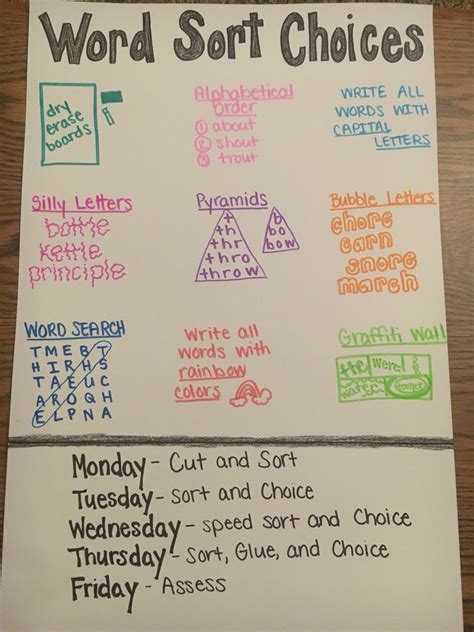 Word Sort Choices
dry
erase
boards
Alphabetical
Order
① about
② shout
③ trout
WRITE ALL
WORDS WITH
CAPITAL
LETTERS
Silly Letters
bottle
kettle
principle
Pyramids
t
th
thr
thro
throw
b
bo
bow
Bubble Letters
chore
earn
snore
march
WORD SEARCH
T M E B T
H I R H S
T A E U C
A R O Q H
E L P N A
Write all
words with
rainbow
colors
Graffiti Wall
the
were
water
Monday - Cut and Sort
Tuesday - Sort and Choice
Wednesday - speed sort and Choice
Thursday - Sort, Glue, and Choice
Friday - Assess